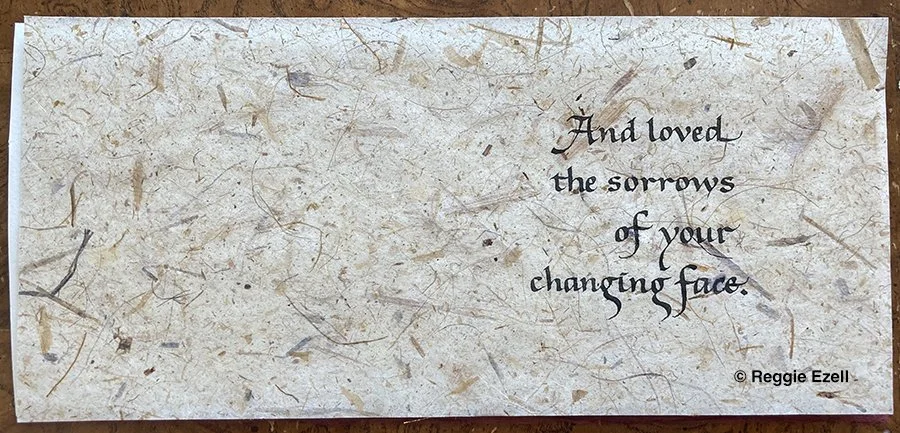 And loved
the sorrows
of your
changing face.
© Reggie Ezell